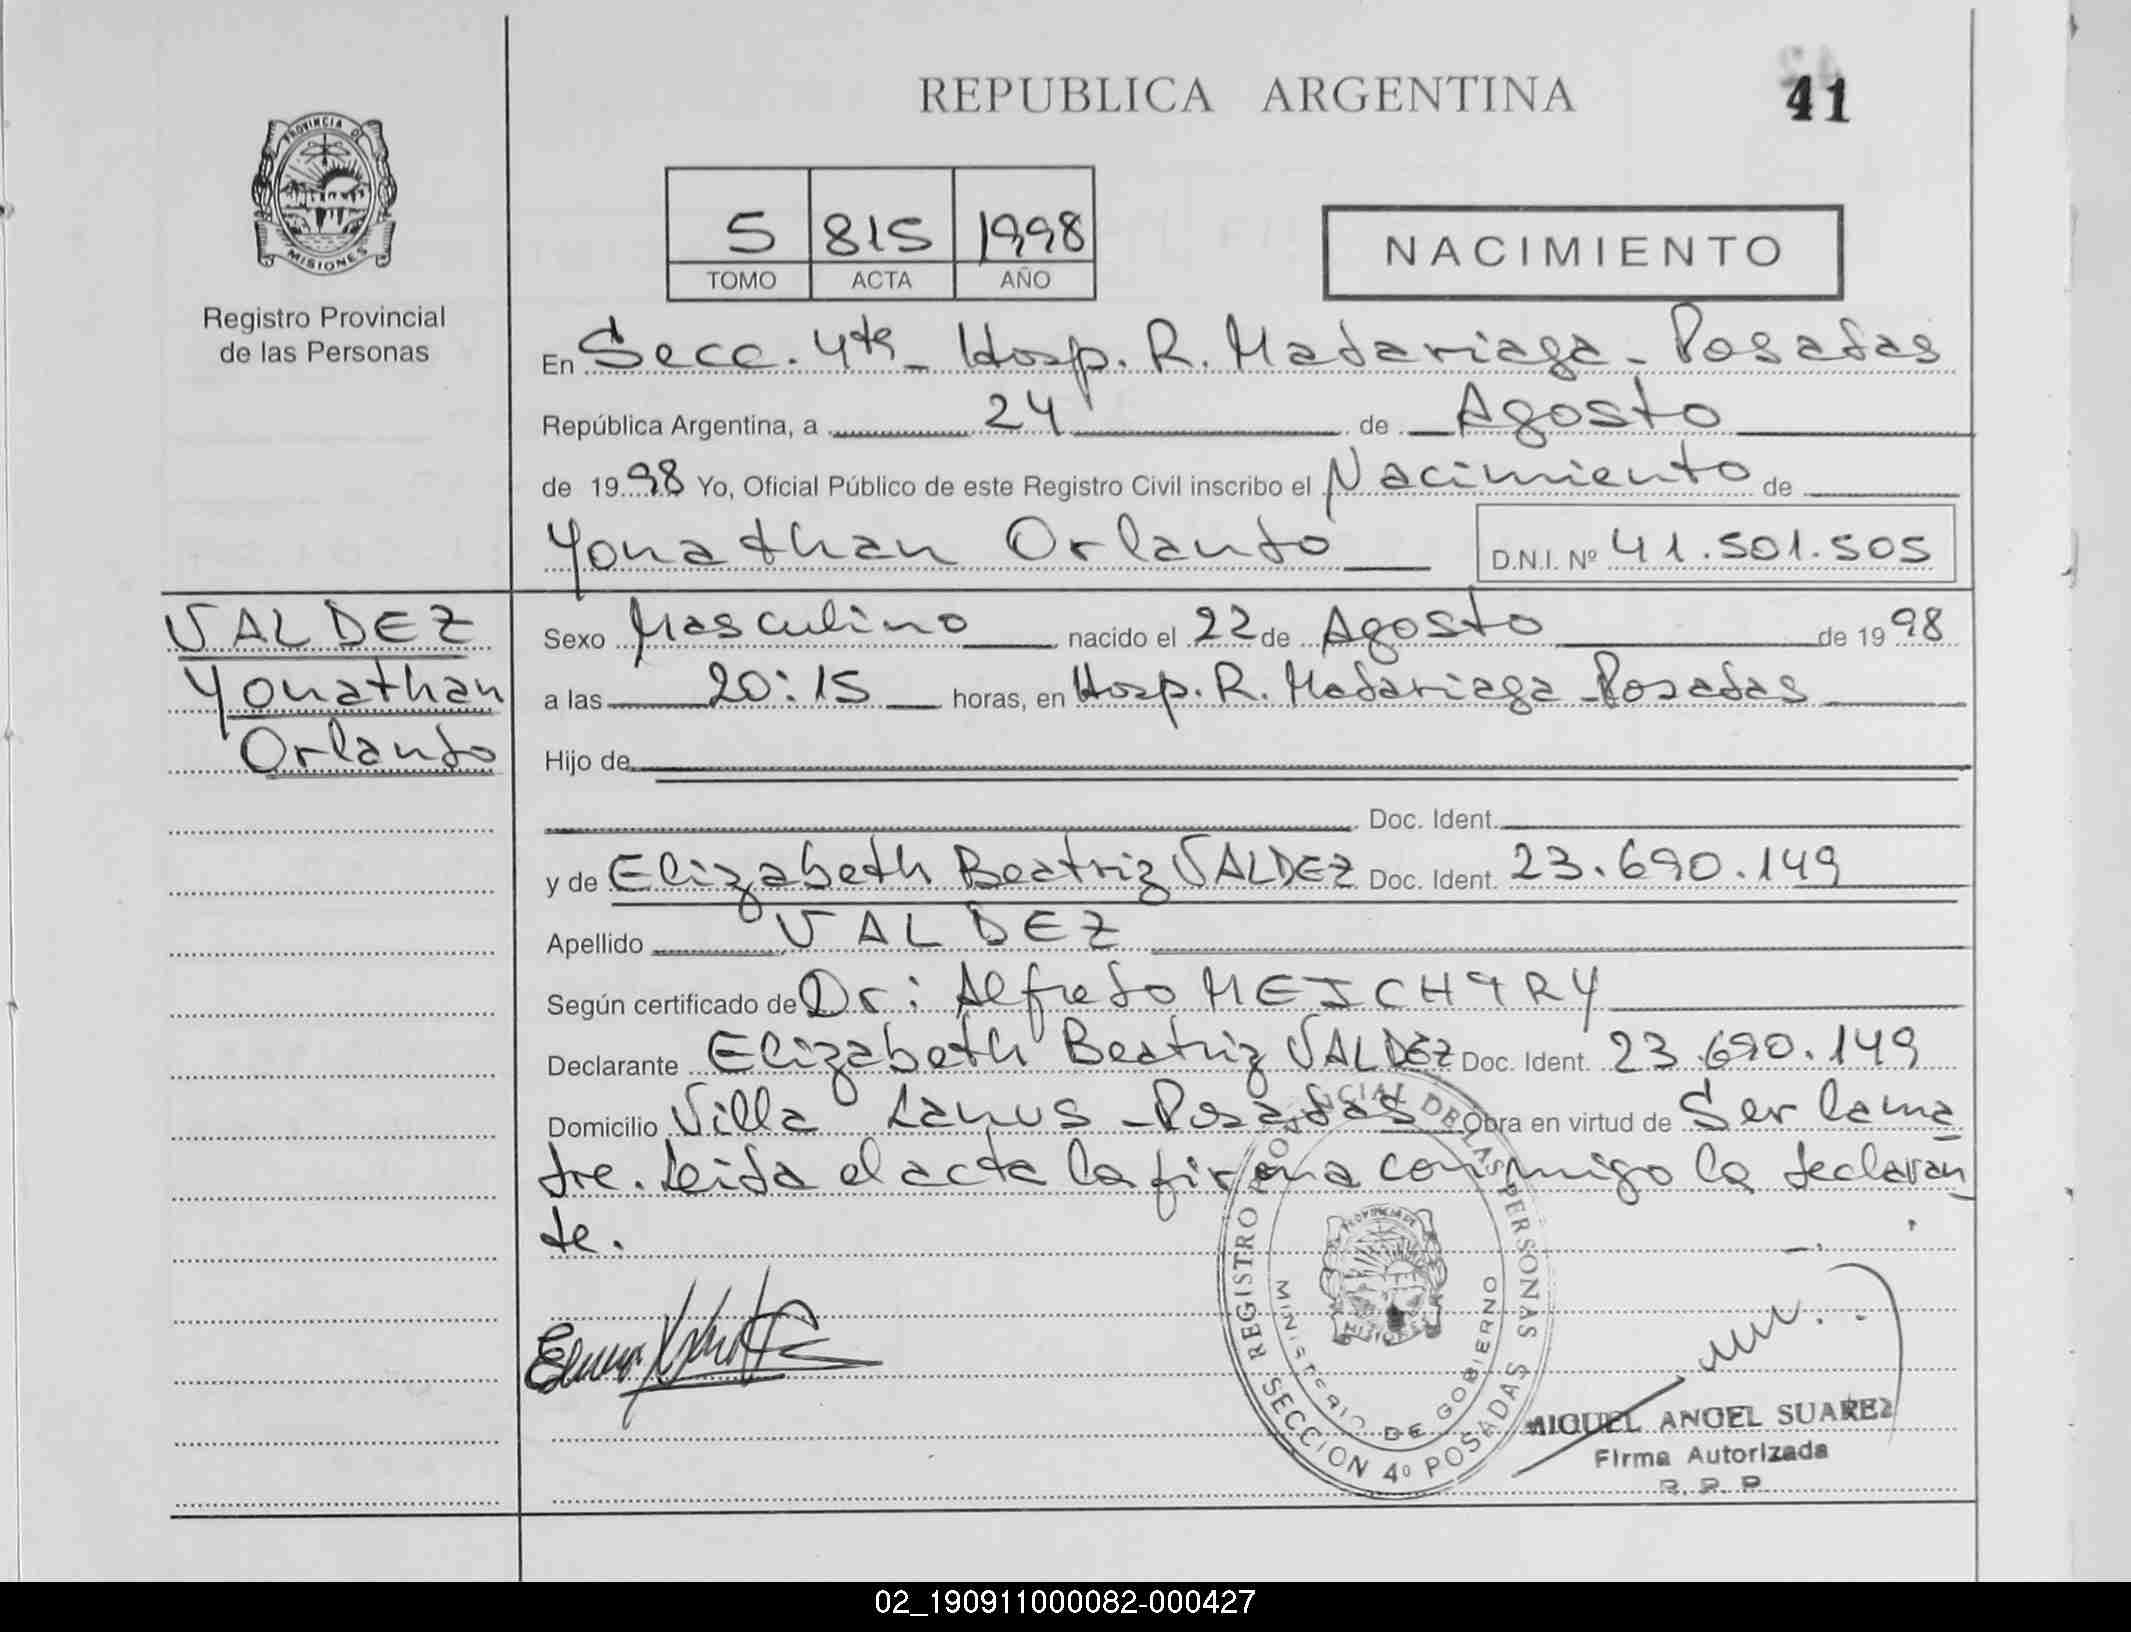 REPUBLICA ARGENTINA
41
PROVINCIA DE
MISIONES
Registro Provincial
de las Personas
5 815 1998
TOMO ACTA AÑO
NACIMIENTO
En Secc. 4ta - Hosp. R. Madariaga - Posadas
República Argentina, a 24 de Agosto
de 1998 Yo, Oficial Público de este Registro Civil inscribo el Nacimiento de
Yonathan Orlando D.N.I. Nº 41.501.505
VALDEZ
Yonathan
Orlando
Sexo Masculino nacido el 22 de Agosto de 1998
a las 20:15 horas, en Hosp. R. Madariaga - Posadas
Hijo de
Doc. Ident.
y de Elizabeth Beatriz VALDEZ Doc. Ident. 23.690.149
Apellido VALDEZ
Según certificado de Dr: Alfredo MEICHTRY
Declarante Elizabeth Beatriz VALDEZ Doc. Ident. 23.690.149
Domicilio Villa Lanus - Posadas Obra en virtud de Ser la ma
dre. Leida el acta la firma conmigo la declaran
te.
REGISTRO PROVINCIAL DE LAS PERSONAS
SECCION 4º POSADAS
MINISTERIO DE GOBIERNO
PROVINCIA DE
MISIONES
MIGUEL ANGEL SUAREZ
Firma Autorizada
R. P. P.
02_190911000082-000427